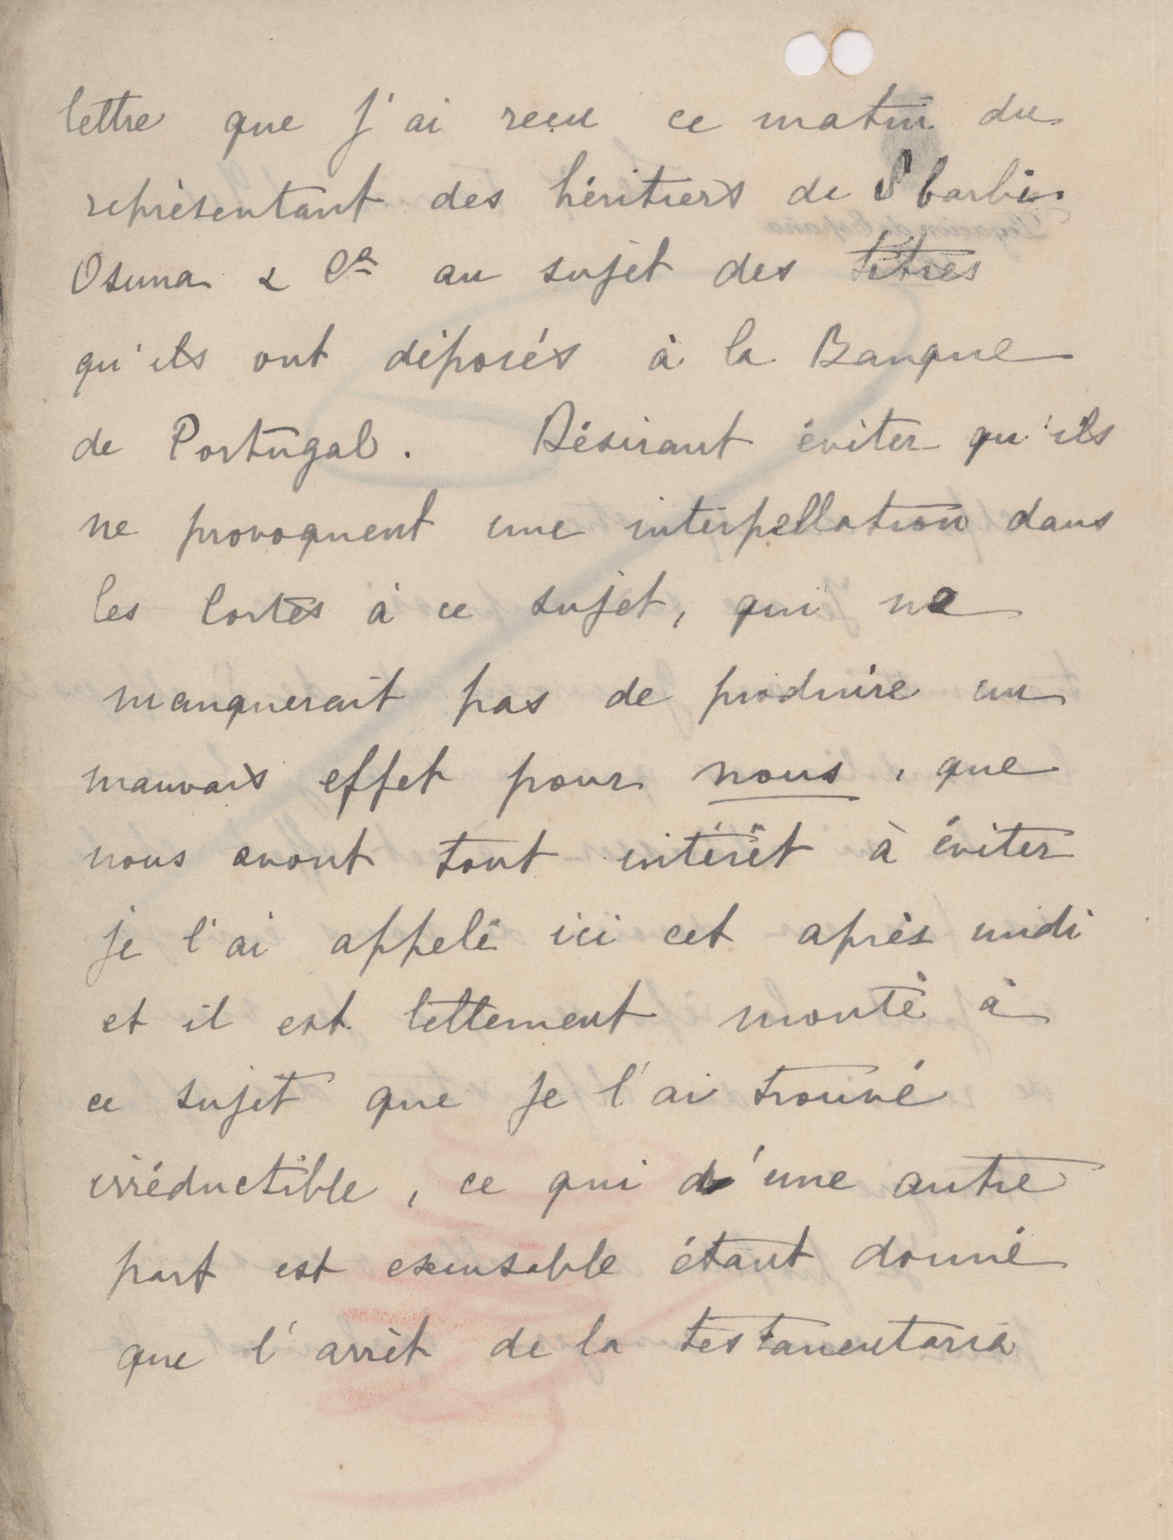 lettre que j'ai reçu ce matin du
représentant des héritiers de Sbarbi
Osuna & Cª au sujet des titres
qu'ils ont déposés à la Banque
de Portugal. Désirant éviter qu'ils
ne provoquent une interpellation dans
les Cortès à ce sujet, qui ne
manquerait pas de produire un
mauvais effet pour nous, que
nous avont tout intérêt à éviter
je l'ai appelé ici cet après midi
et il est tellement monté à
ce sujet que je l'ai trouvé
irréductible, ce qui d'une autre
part est excusable étant donné
que l'arrêt de la testamentaria